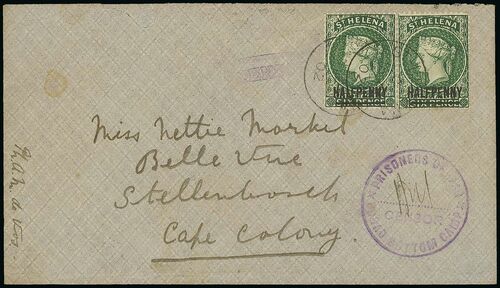 ST HELENA
HALFPENNY
SIX PENCE
ST HELENA
HALFPENNY
SIX PENCE
Miss Nettie Market
Belle Vue
Stellenbosch
Cape Colony.
PRISONERS OF
CENSOR
BOTTOM CAMP